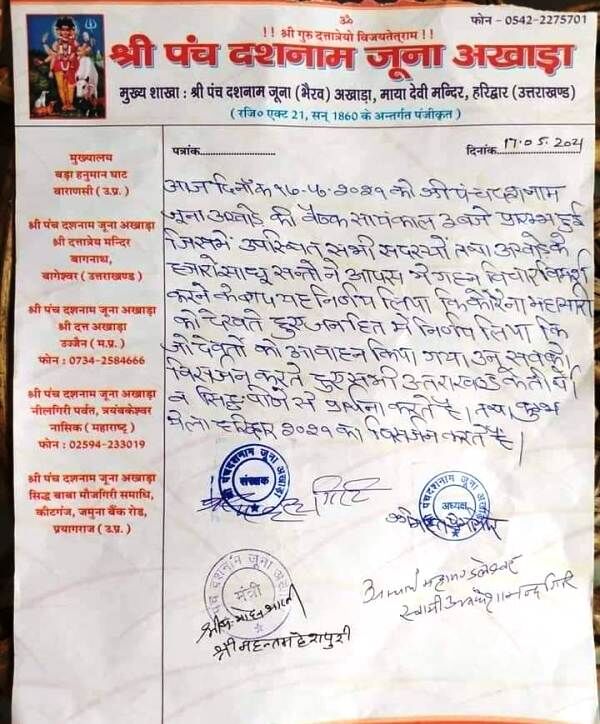 ॐ
फोन - 0542-2275701
!! श्री गुरु दत्तात्रेयो विजयतेतराम !!
श्री पंच दशनाम जूना अखाड़ा
मुख्य शाखा : श्री पंच दशनाम जूना (भैरव) अखाड़ा, माया देवी मन्दिर, हरिद्वार (उत्तराखण्ड)
(रजि० एक्ट 21, सन् 1860 के अन्तर्गत पंजीकृत)
पत्रांक..................
दिनांक 17.05.2021
मुख्यालय
बड़ा हनुमान घाट
वाराणसी (उ.प्र.)
श्री पंच दशनाम जूना अखाड़ा
श्री दत्तात्रेय मन्दिर
बागनाथ,
बागेश्वर (उत्तराखण्ड)
श्री पंच दशनाम जूना अखाड़ा
श्री दत्त अखाड़ा
उज्जैन (म.प्र.)
फोन : 0734-2584666
श्री पंच दशनाम जूना अखाड़ा
नीलगिरी पर्वत, त्रयंबकेश्वर
नासिक (महाराष्ट्र)
फोन : 02594-233019
श्री पंच दशनाम जूना अखाड़ा
सिद्ध बाबा मौजगिरी समाधि,
कीटगंज, जमुना बैंक रोड,
प्रयागराज (उ.प्र.)
आज दिनाँक को श्री पंचदशनाम
जूना अखाड़े की बैठक सायंकाल ३ बजे प्रारम्भ हुई
जिसमें उपस्थित सभी सदस्यों तथा अखाड़े के
हजारो साधू सन्तों ने आपस में गहन विचार विमर्श
करने के बाद यह निर्णय लिया कि कोरोना महामारी
को देखते हुए जन हित में निर्णय लिया कि
जो देवतों को आवाहन किया गया उन सबको
विसर्जन करते हुए सभी उत्तराखण्ड के तीर्थ
व सिद्ध पीठो से प्रार्थना करते है। तथा कुम्भ
मेला हरिद्वार २०२१ का विसर्जन करते है।
श्री पंचदशनाम जूना अखाड़ा
संरक्षक
गिरि
श्री पंचदशनाम जूना अखाड़ा
अध्यक्ष
श्री पंच दशनाम जूना अखाड़ा
मंत्री
श्रीमहन्त महेशपुरी
आचार्य महामण्डलेश्वर
स्वामी गिरि